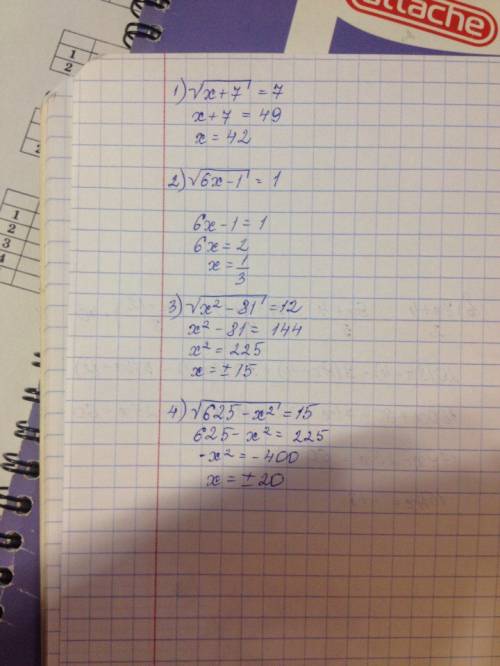 attache
1
2
1
2
3
4
1) √x+7 = 7
x+7 = 49
x = 42
2) √6x-1 = 1
6x-1 = 1
6x = 2
x = 1/3
3) √x² - 81 = 12
x² - 81 = 144
x² = 225
x = ±15
4) √625 - x² = 15
625 - x² = 225
-x² = -400
x = ±20